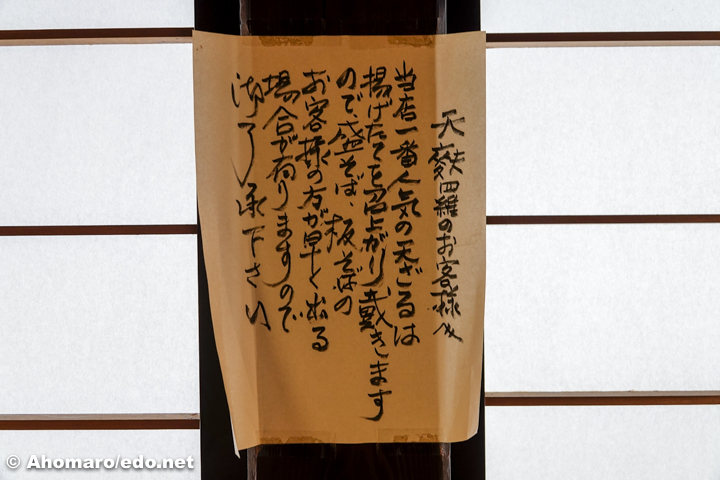 天麩羅のお客様へ
当店一番人気の天ざるは
揚げたてを召上がり戴きます
ので、盛そば、板そばの
お客様の方が早く出る
場合が有りますので
御了承下さい
© Ahomaro/edo.net